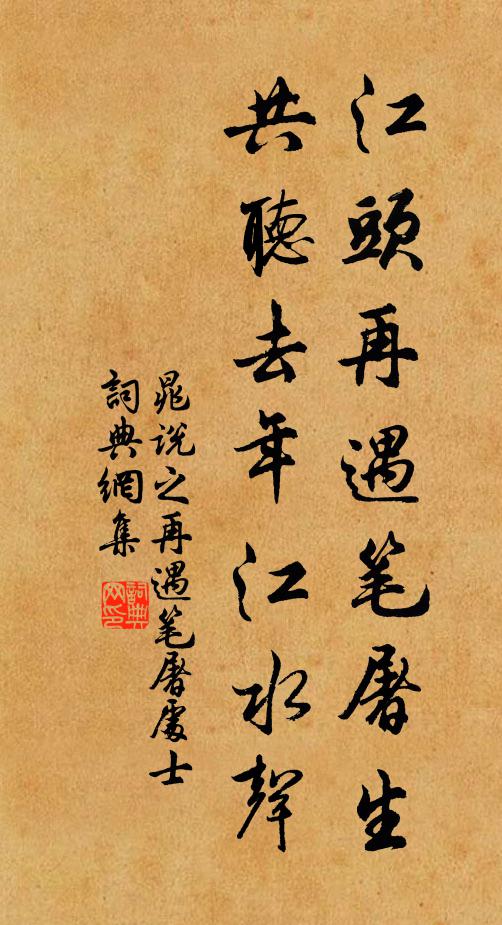 江頭再遇笔屠生
共聽去年江水聲
晁說之再遇笔屠處士
詞典網集
詞典网印